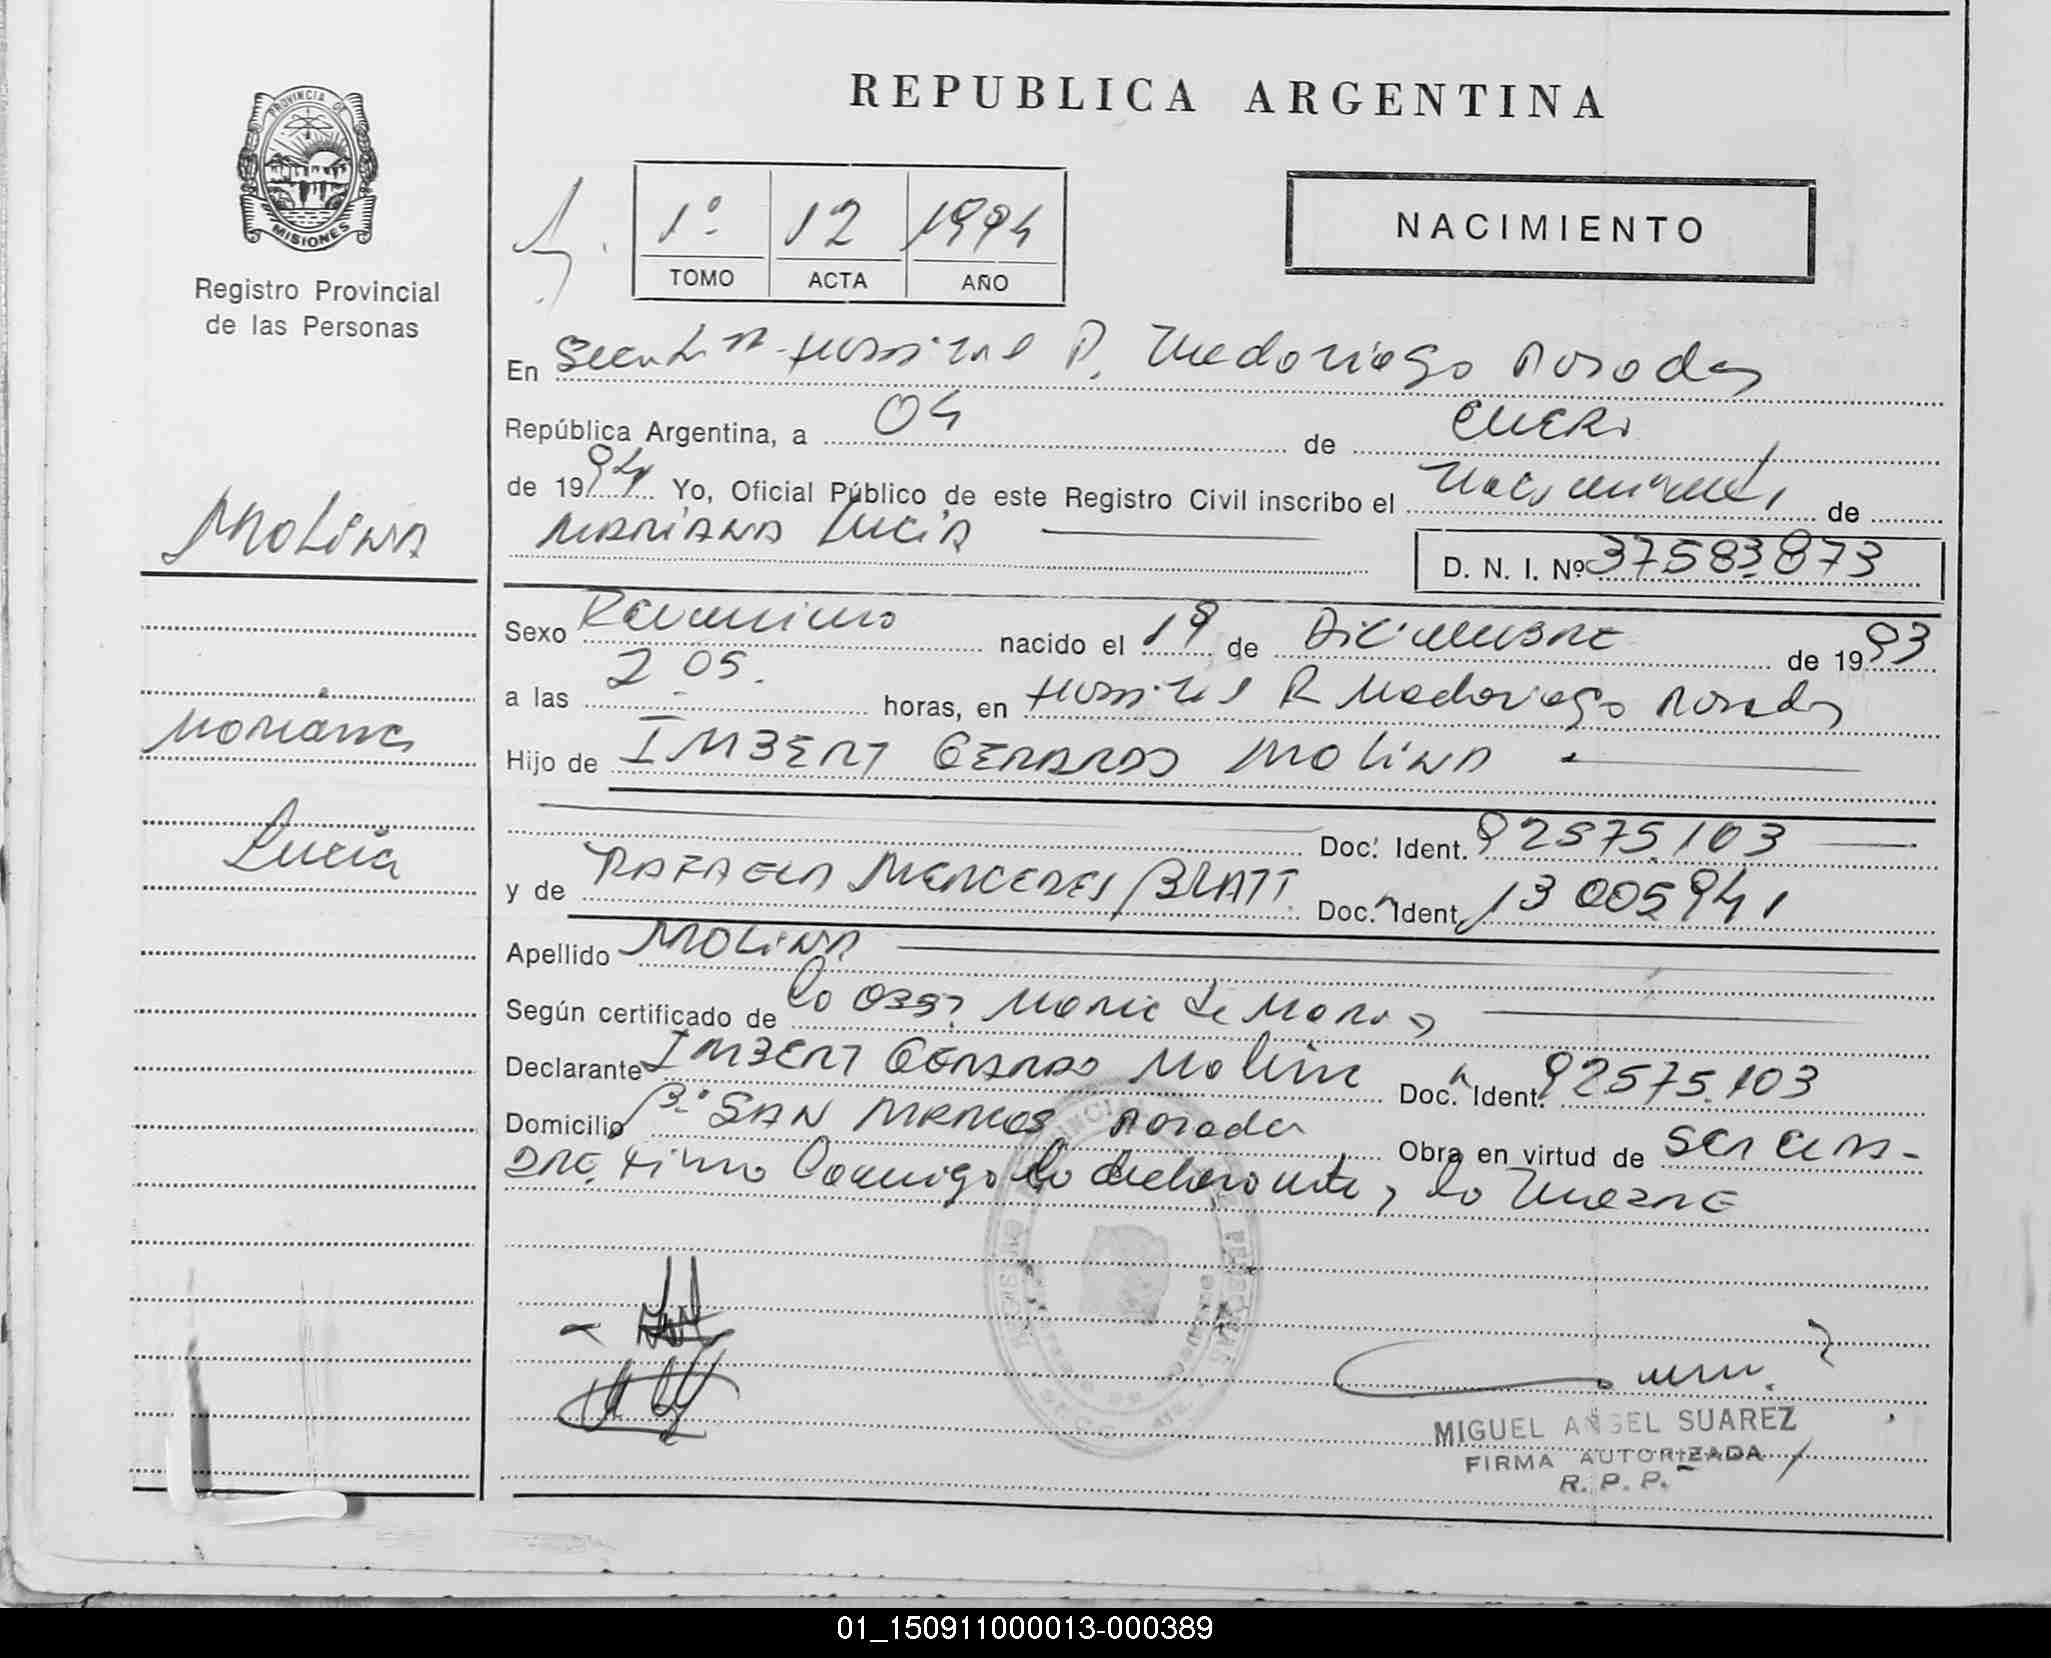 REPUBLICA ARGENTINA
PROVINCIA DE
MISIONES
Registro Provincial
de las Personas
1º 12 1994
TOMO ACTA AÑO
NACIMIENTO
En R. Madariaga Posadas
República Argentina, a 04 de ENERO
de 1994 Yo, Oficial Público de este Registro Civil inscribo el Nacimiento de
MARIANA LUCIA
D. N. I. Nº 37583.873
MOLINA
Mariana
Lucia
Sexo Femenino nacido el 19 de DICIEMBRE de 1993
a las 2 05. horas, en Hospital R Madariaga Posadas
Hijo de IMBERT GERARDO MOLINA
Doc. Ident. 92575.103
y de RAFAELA MERCEDES BLATT. Doc. Ident. 13 005941
Apellido MOLINA
Según certificado de la Obst. Maria de
Declarante IMBERT GERARDO Molina Doc. Ident. 92575.103
Domicilio Bº SAN MARCOS Posadas Obra en virtud de ser el PA-
DRE. Firma Conmigo la declarante y la MADRE
MIGUEL ANGEL SUAREZ
FIRMA AUTORIZADA
R. P. P.
01_150911000013-000389